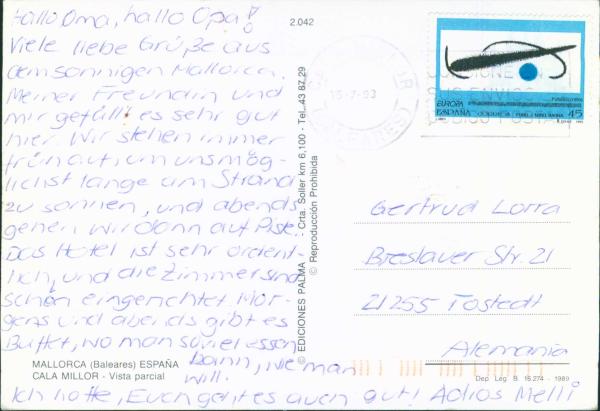 Hallo Oma, hallo Opa!
Viele liebe Grüße aus
dem sonnigen Mallorca.
Meiner Freundin und
mir gefällt es sehr gut
hier. Wir stehen immer
früh auf, um uns mög-
lichst lange am Strand
zu sonnen, und abends
gehen wir dann auf Piste.
Das Hotel ist sehr ordent-
lich, und die Zimmer sind
schön eingerichtet. Mor-
gens und abends gibt es
Buffet, wo man soviel essen
kann, wie man
will.
Ich hoffe, Euch geht es auch gut! Adios Melli
MALLORCA (Baleares) ESPAÑA
CALA MILLOR - Vista parcial
2.042
© EDICIONES PALMA - Crta. Soller km 6,100 - Tel. 43 87 29
© Reproducción Prohibida
15-7-93
BALEARES
EUROPA
ESPAÑA
45
Gertrud Lorra
Breslauer Str. 21
21255 Tostedt
Alemania
Dep. Leg. B. 16.274 - 1989